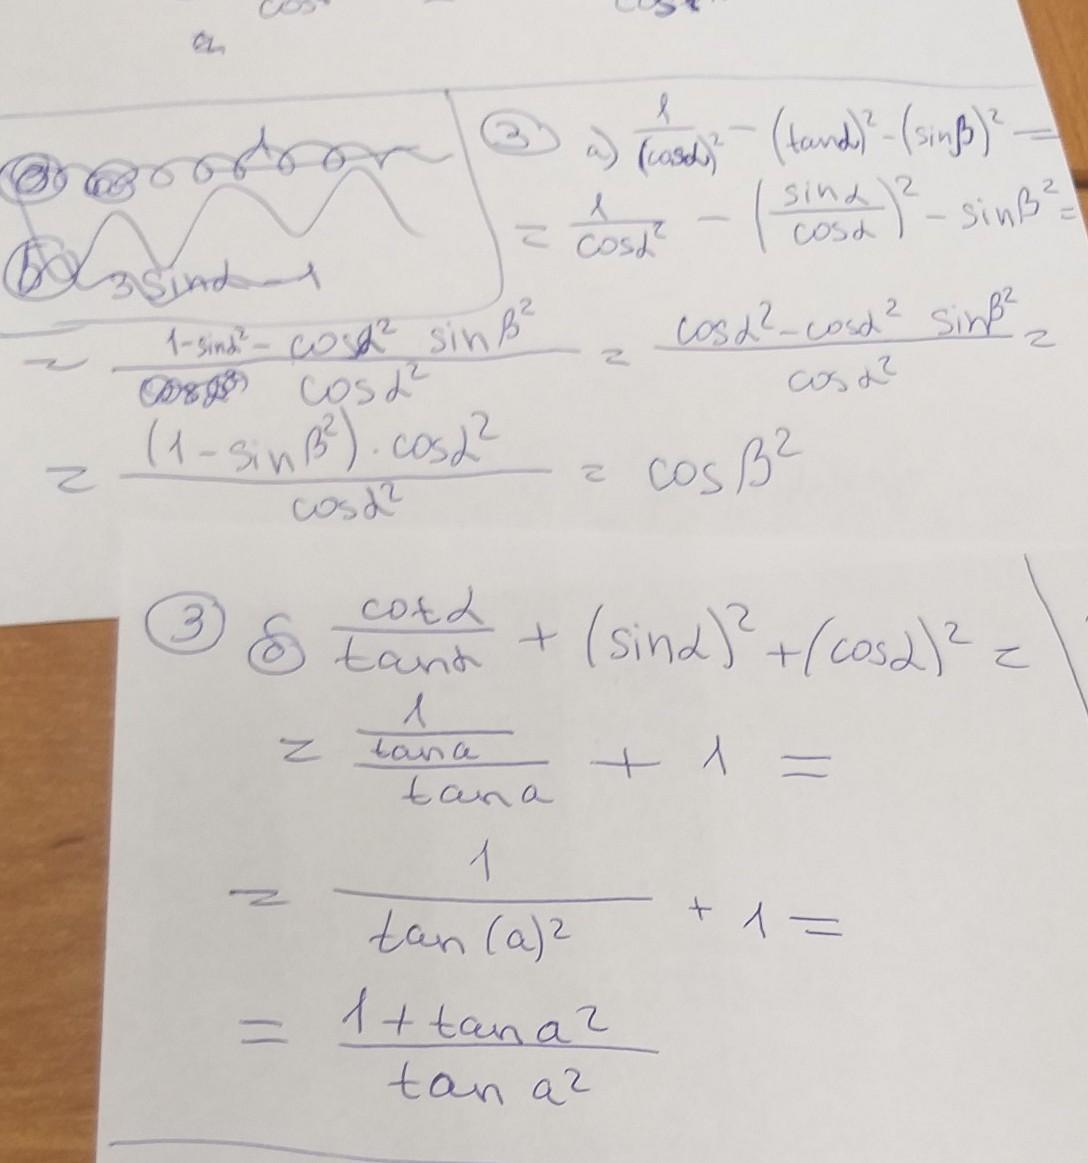 a
③ a) 1/(cosα)² - (tanα)² - (sinβ)² =
= 1/cosα² - (sinα/cosα)² - sinβ² =
3sinα-1
= (1-sinα² - cosα² sinβ²)/cosα² = (cosα² - cosα² sinβ²)/cosα² =
= ((1-sinβ²)·cosα²)/cosα² = cosβ²
③ б cotα/tanα + (sinα)² + (cosα)² =
= (1/tan a)/tan a + 1 =
= 1/tan(a)² + 1 =
= (1+tan a²)/tan a²